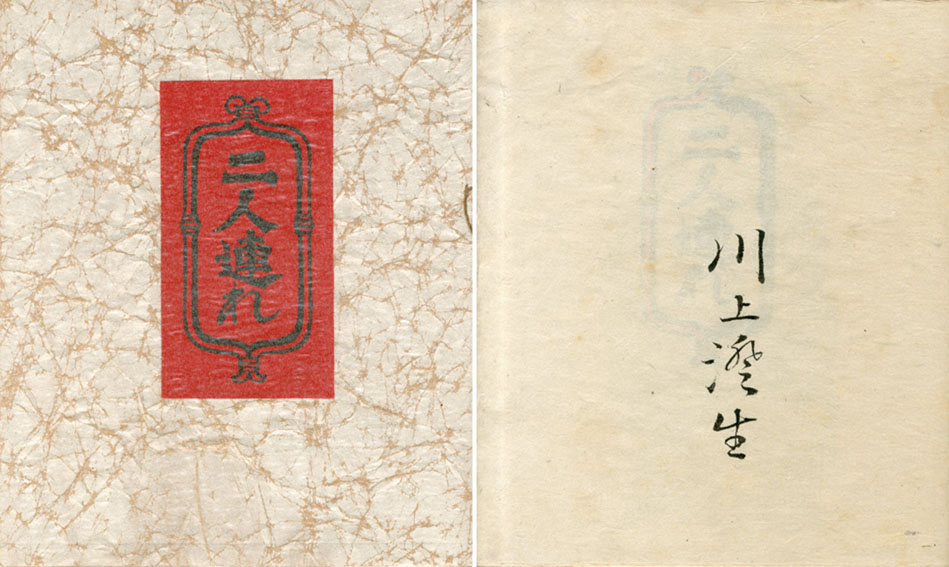 二人連れ
川上澄生